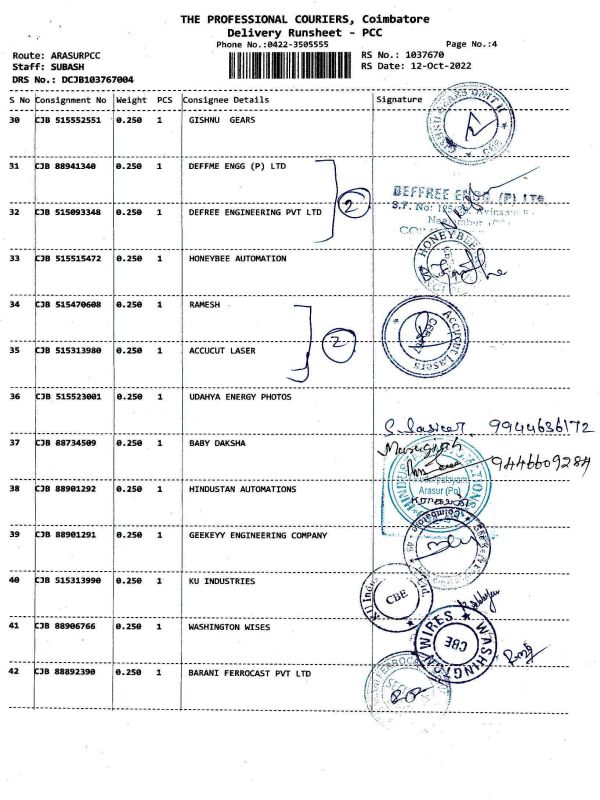 THE PROFESSIONAL COURIERS, Coimbatore
Delivery Runsheet - PCC
Phone No.:0422-3505555 Page No.:4
Route: ARASURPCC RS No.: 1037670
Staff: SUBASH RS Date: 12-Oct-2022
DRS No.: DCJB103767004
S No Consignment No Weight PCS Consignee Details Signature
30 CJB 515552551 0.250 1 GISHNU GEARS
31 CJB 88941340 0.250 1 DEFFME ENGG (P) LTD
2
DEFFREE ENGG. (P) LTD
S.F. No:
32 CJB 515093348 0.250 1 DEFREE ENGINEERING PVT LTD
HONEYBEE
33 CJB 515515472 0.250 1 HONEYBEE AUTOMATION
34 CJB 515470608 0.250 1 RAMESH
2
Accucut Lasers
35 CJB 515313980 0.250 1 ACCUCUT LASER
36 CJB 515523001 0.250 1 UDAHYA ENERGY PHOTOS
9944636172
37 CJB 88734509 0.250 1 BABY DAKSHA
9446609284
38 CJB 88901292 0.250 1 HINDUSTAN AUTOMATIONS
Arasur (Po)
39 CJB 88901291 0.250 1 GEEKEYY ENGINEERING COMPANY
40 CJB 515313990 0.250 1 KU INDUSTRIES
CBE
41 CJB 88906766 0.250 1 WASHINGTON WISES
WASHINGTON WIRES
CBE
42 CJB 88892390 0.250 1 BARANI FERROCAST PVT LTD